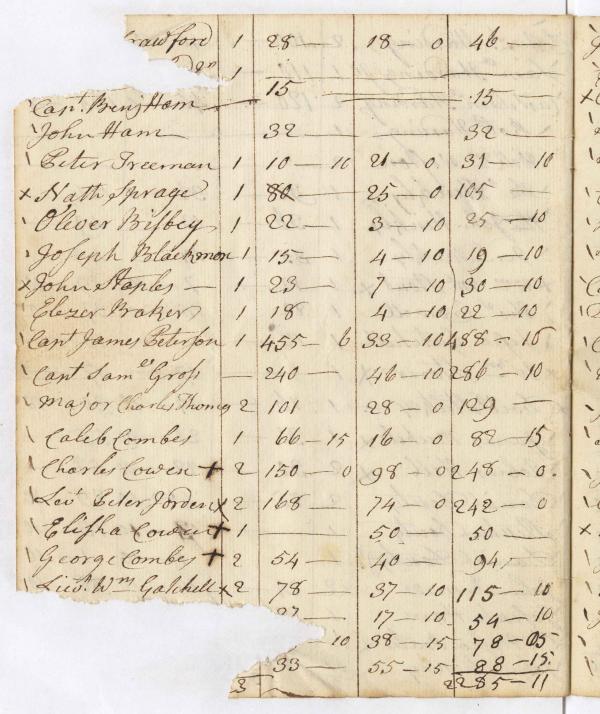 rawford 1 28 — 18 — 0 46 —
1 — — —
Capt. Benj Ham — 15 — .15 —
John Ham 32 — 32 —
Peter Freeman 1 10 — 10 21 — 0 31 — 10
x Nath Sprage 1 80 25 — 0 105 —
Oliver Bisbey 1 22 — 3 — 10 25 — 10
Joseph Blackmon 1 15 — 4 — 10 19 — 10
x John Staples — 1 23 — 7 — 10 30 — 10
Elezer Braker 1 18 4 — 10 22 — 10
Capt James Peterson 1 455 — 6 33 — 10 488 — 16
Capt Samel Gross — 240 — 46 — 10 286 — 10
Major Charles Thomes 2 101 28 — 0 129 —
Caleb Combes 1 66 — 15 16 — 0 82 — 15
Charles Cowen + 2 150 — 0 98 — 0 248 — 0.
Levt Peter Jorden x 2 168 — 74 — 0 242 — 0
Elisha Cowen + 1 — 50 — 50 —
George Combes + 2 54 — 40 — 94
Lievt. Wm Gatchell x 2 78 — 37 — 10 115 — 10
37 — 17 — 10 54 — 10
10 38 — 15 78 — 05
33 — 55 — 15 88 — 15.
3 2285 — 11